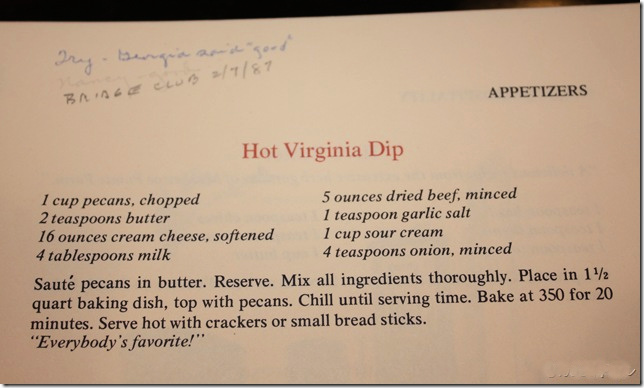 Try - Georgia said "good"
BRIDGE CLUB 2/7/87
APPETIZERS
Hot Virginia Dip
1 cup pecans, chopped
2 teaspoons butter
16 ounces cream cheese, softened
4 tablespoons milk
5 ounces dried beef, minced
1 teaspoon garlic salt
1 cup sour cream
4 teaspoons onion, minced
Sauté pecans in butter. Reserve. Mix all ingredients thoroughly. Place in 1 1/2
quart baking dish, top with pecans. Chill until serving time. Bake at 350 for 20
minutes. Serve hot with crackers or small bread sticks.
"Everybody's favorite!"